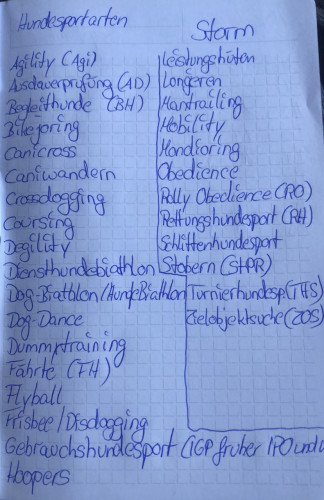 Hundesportarten
Agility (Agi)
Ausdauerprüfung (AD)
Begleithunde (BH)
Bikejöring
Canicross
Caniwandern
Crossdogging
Coursing
Degility
Diensthundebiathlon
Dog-Biathlon/HundeBiathlon
Dog-Dance
Dummytraining
Fährte (FH)
Flyball
Frisbee/Discdogging
Gebrauchshundesport (IGP früher IPO und
Hoopers
Leistungshüten
Longieren
Mantrailing
Mobility
Mondioring
Obedience
Rally Obedience (RO)
Rettungshundesport (RH)
Schlittenhundesport
Stöbern (StPR)
Turnierhundesp(THS)
Zielobjektsuche(ZOS)